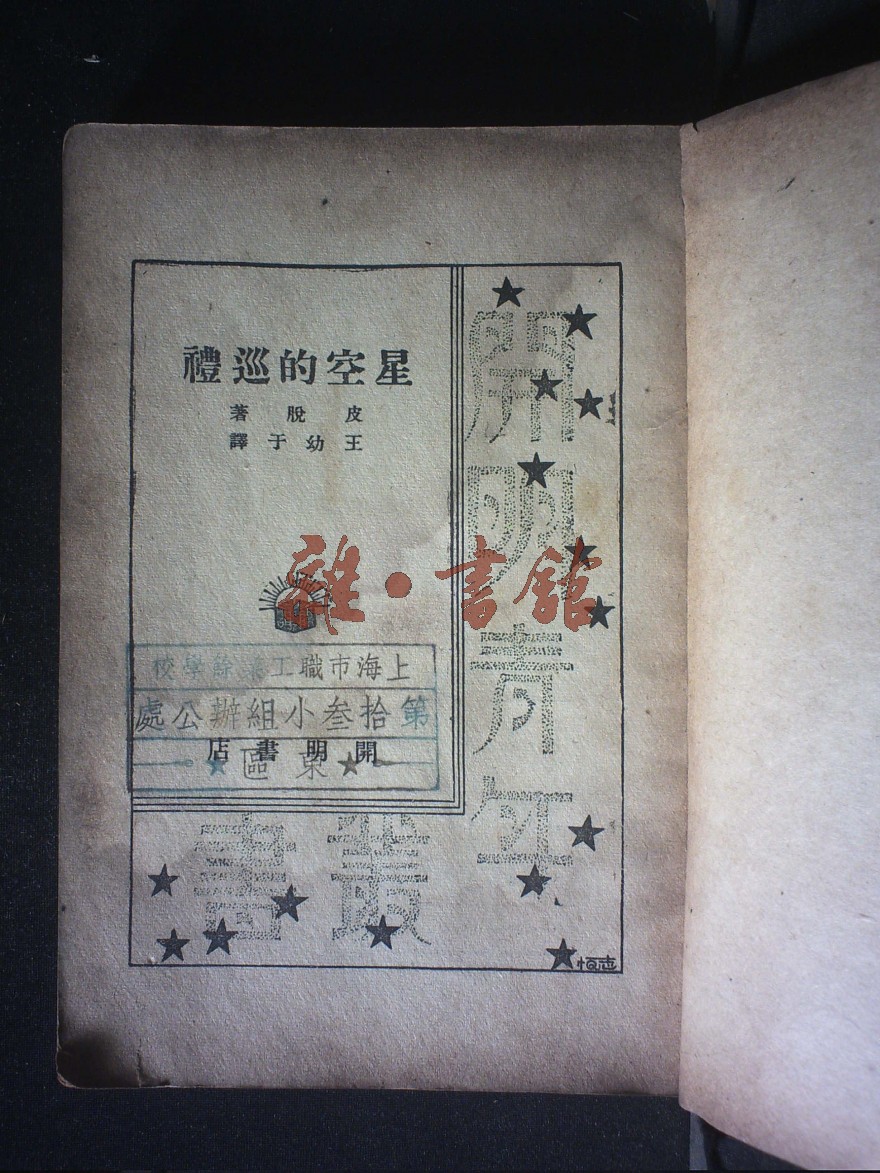 星空的巡禮
皮脫著
王幼于譯
開明書店
開明青年叢書
上海市職工業餘學校
第拾叁小組辦公處
東區
雜·書館